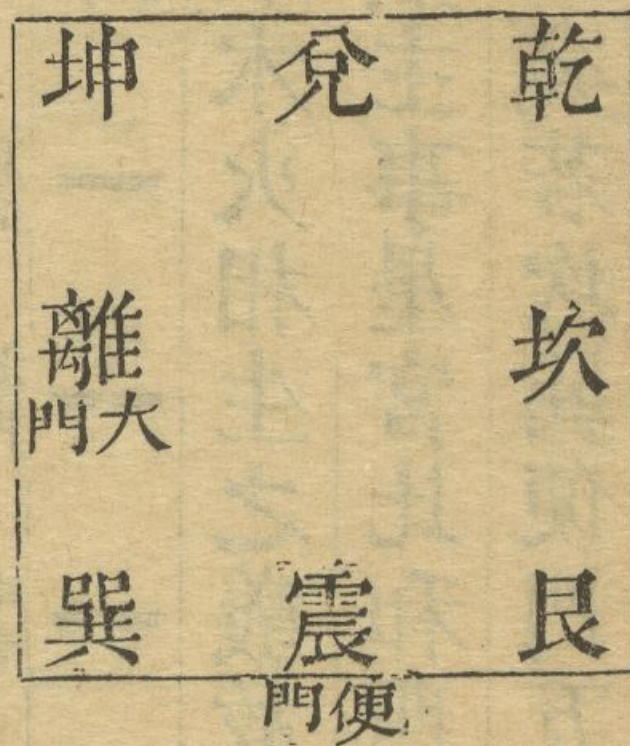 乾
坎
艮
兌
震
便門
坤
離
大門
巽